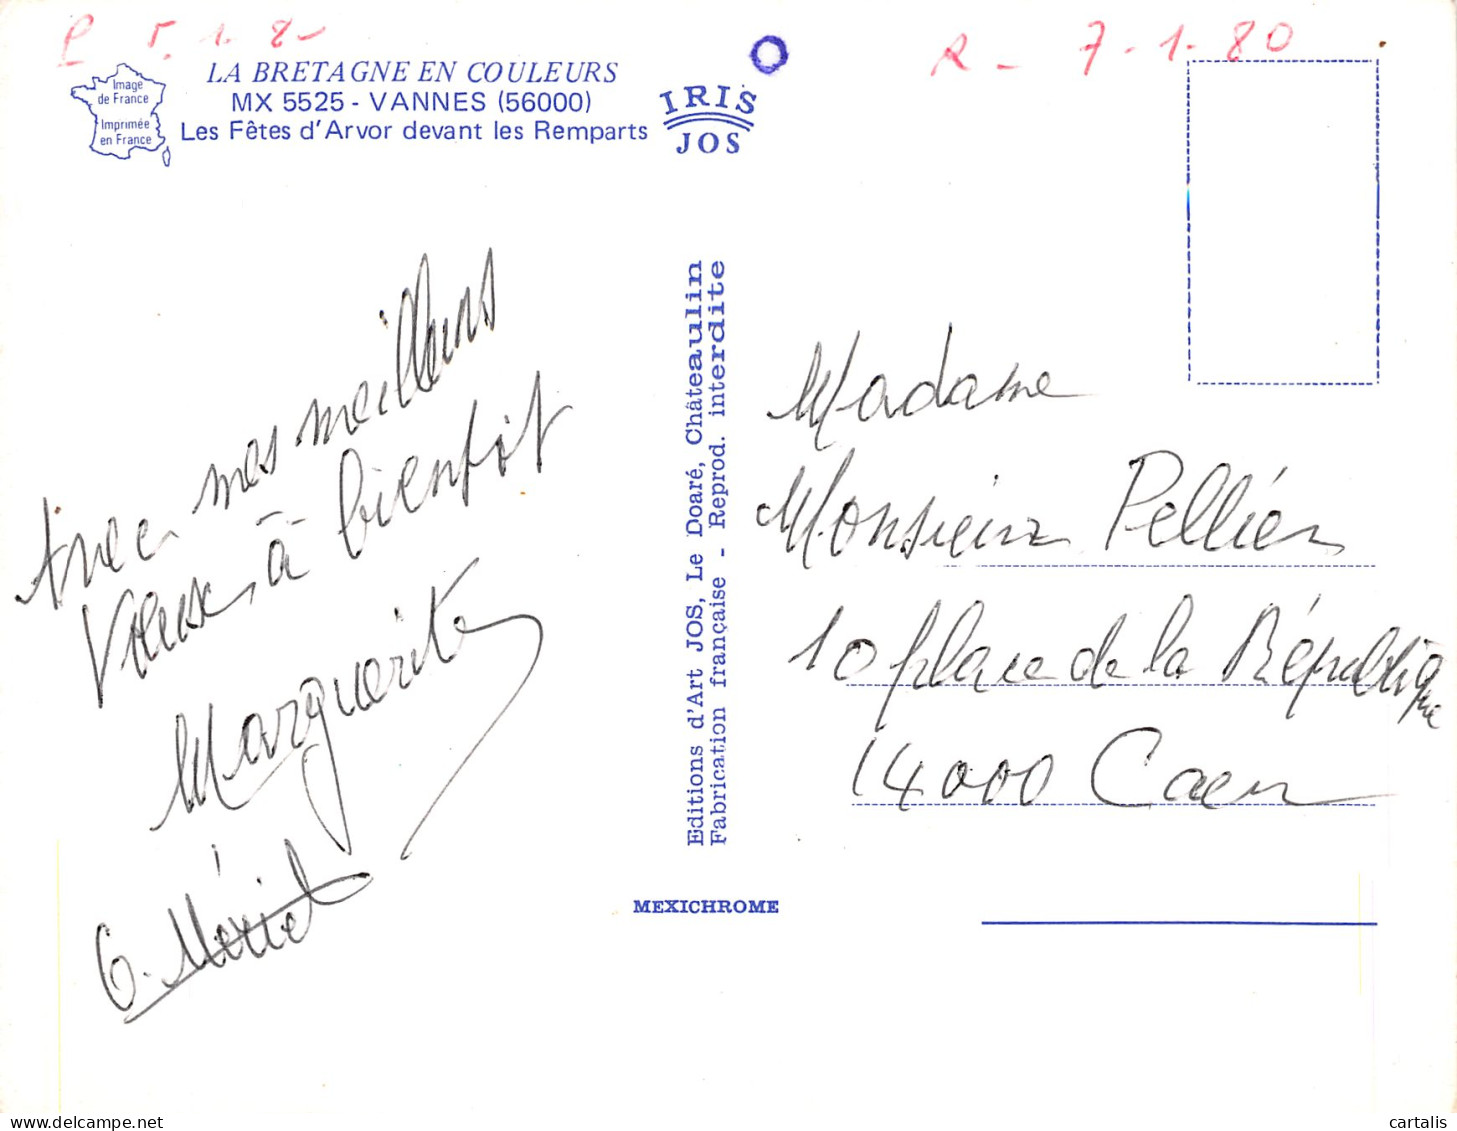 P 5.1.8-
R - 7-1-80
LA BRETAGNE EN COULEURS
MX 5525 - VANNES (56000)
Les Fêtes d'Arvor devant les Remparts
Image
de France
Imprimée
en France
IRIS
JOS
Avec mes meilleurs
Vœux, à bientôt
Marguerite
G. Mériet
Editions d'Art JOS, Le Doaré, Châteaulin
Fabrication française - Reprod. interdite
MEXICHROME
Madame
Monsieur Pellién
10 place de la République
14000 Caen
cartalis